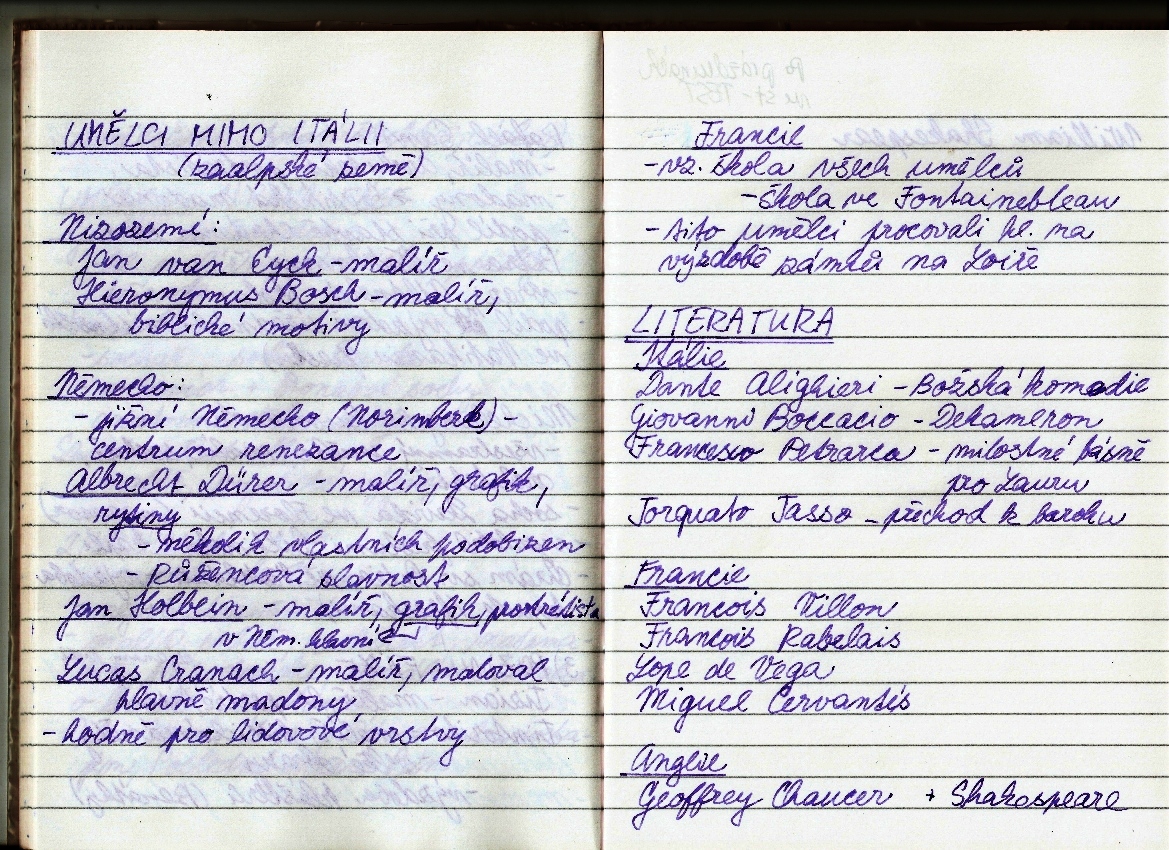 UMĚLCI MIMO ITÁLII
(zaalpské země)
Nizozemí:
Jan van Eych - malíř
Hieronymus Bosch - malíř,
biblické motivy
Německo:
- jižní Německo (Norimberk) -
centrum renezance
Albrecht Dürer - malíř, grafik,
rytiny
- několik vlastních podobizen
- Růžencová slavnost
Jan Holbein - malíř, grafik, portrétista
v Něm. hlavní
Lucas Cranach - malíř, maloval
hlavně madony
- hodně pro lidovové vrstvy
Francie
- vz. škola všech umělců
- škola ve Fontainebleau
- tito umělci procovali hl. na
výzdobě zámků na Loiře
LITERATURA
Itálie
Dante Alighieri - Božská komedie
Giovanni Boccacio - Dekameron
Francesco Petrarca - milostné básně
pro Lauru
Torquato Tasso - přechod k baroku
Francie
Francois Villon
Francois Rabelais
Lope de Vega
Miguel Cervantés
Anglie
Geoffrey Chaucer + Shakespeare